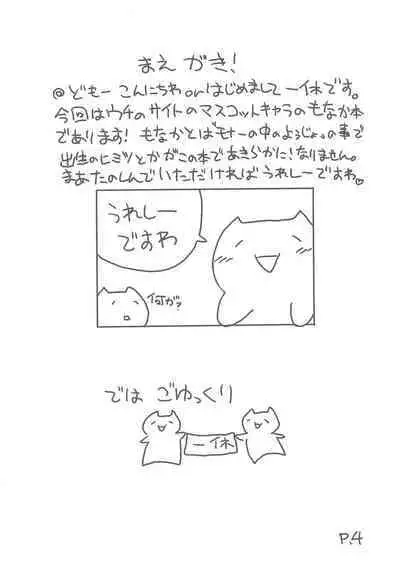 まえがき!
@どもー こんにちわorはじめまして 一休です。
今回はウチのサイトのマスコットキャラのもなか本
であります! もなかとはモナーの中のようじょの事で
出生のヒミツとかがこの本であきらかに!なりません。
まあたのしんでいただければうれしーですわ♡
うれしー
ですわ
何がっ?
では ごゆっくり
一休
P.4